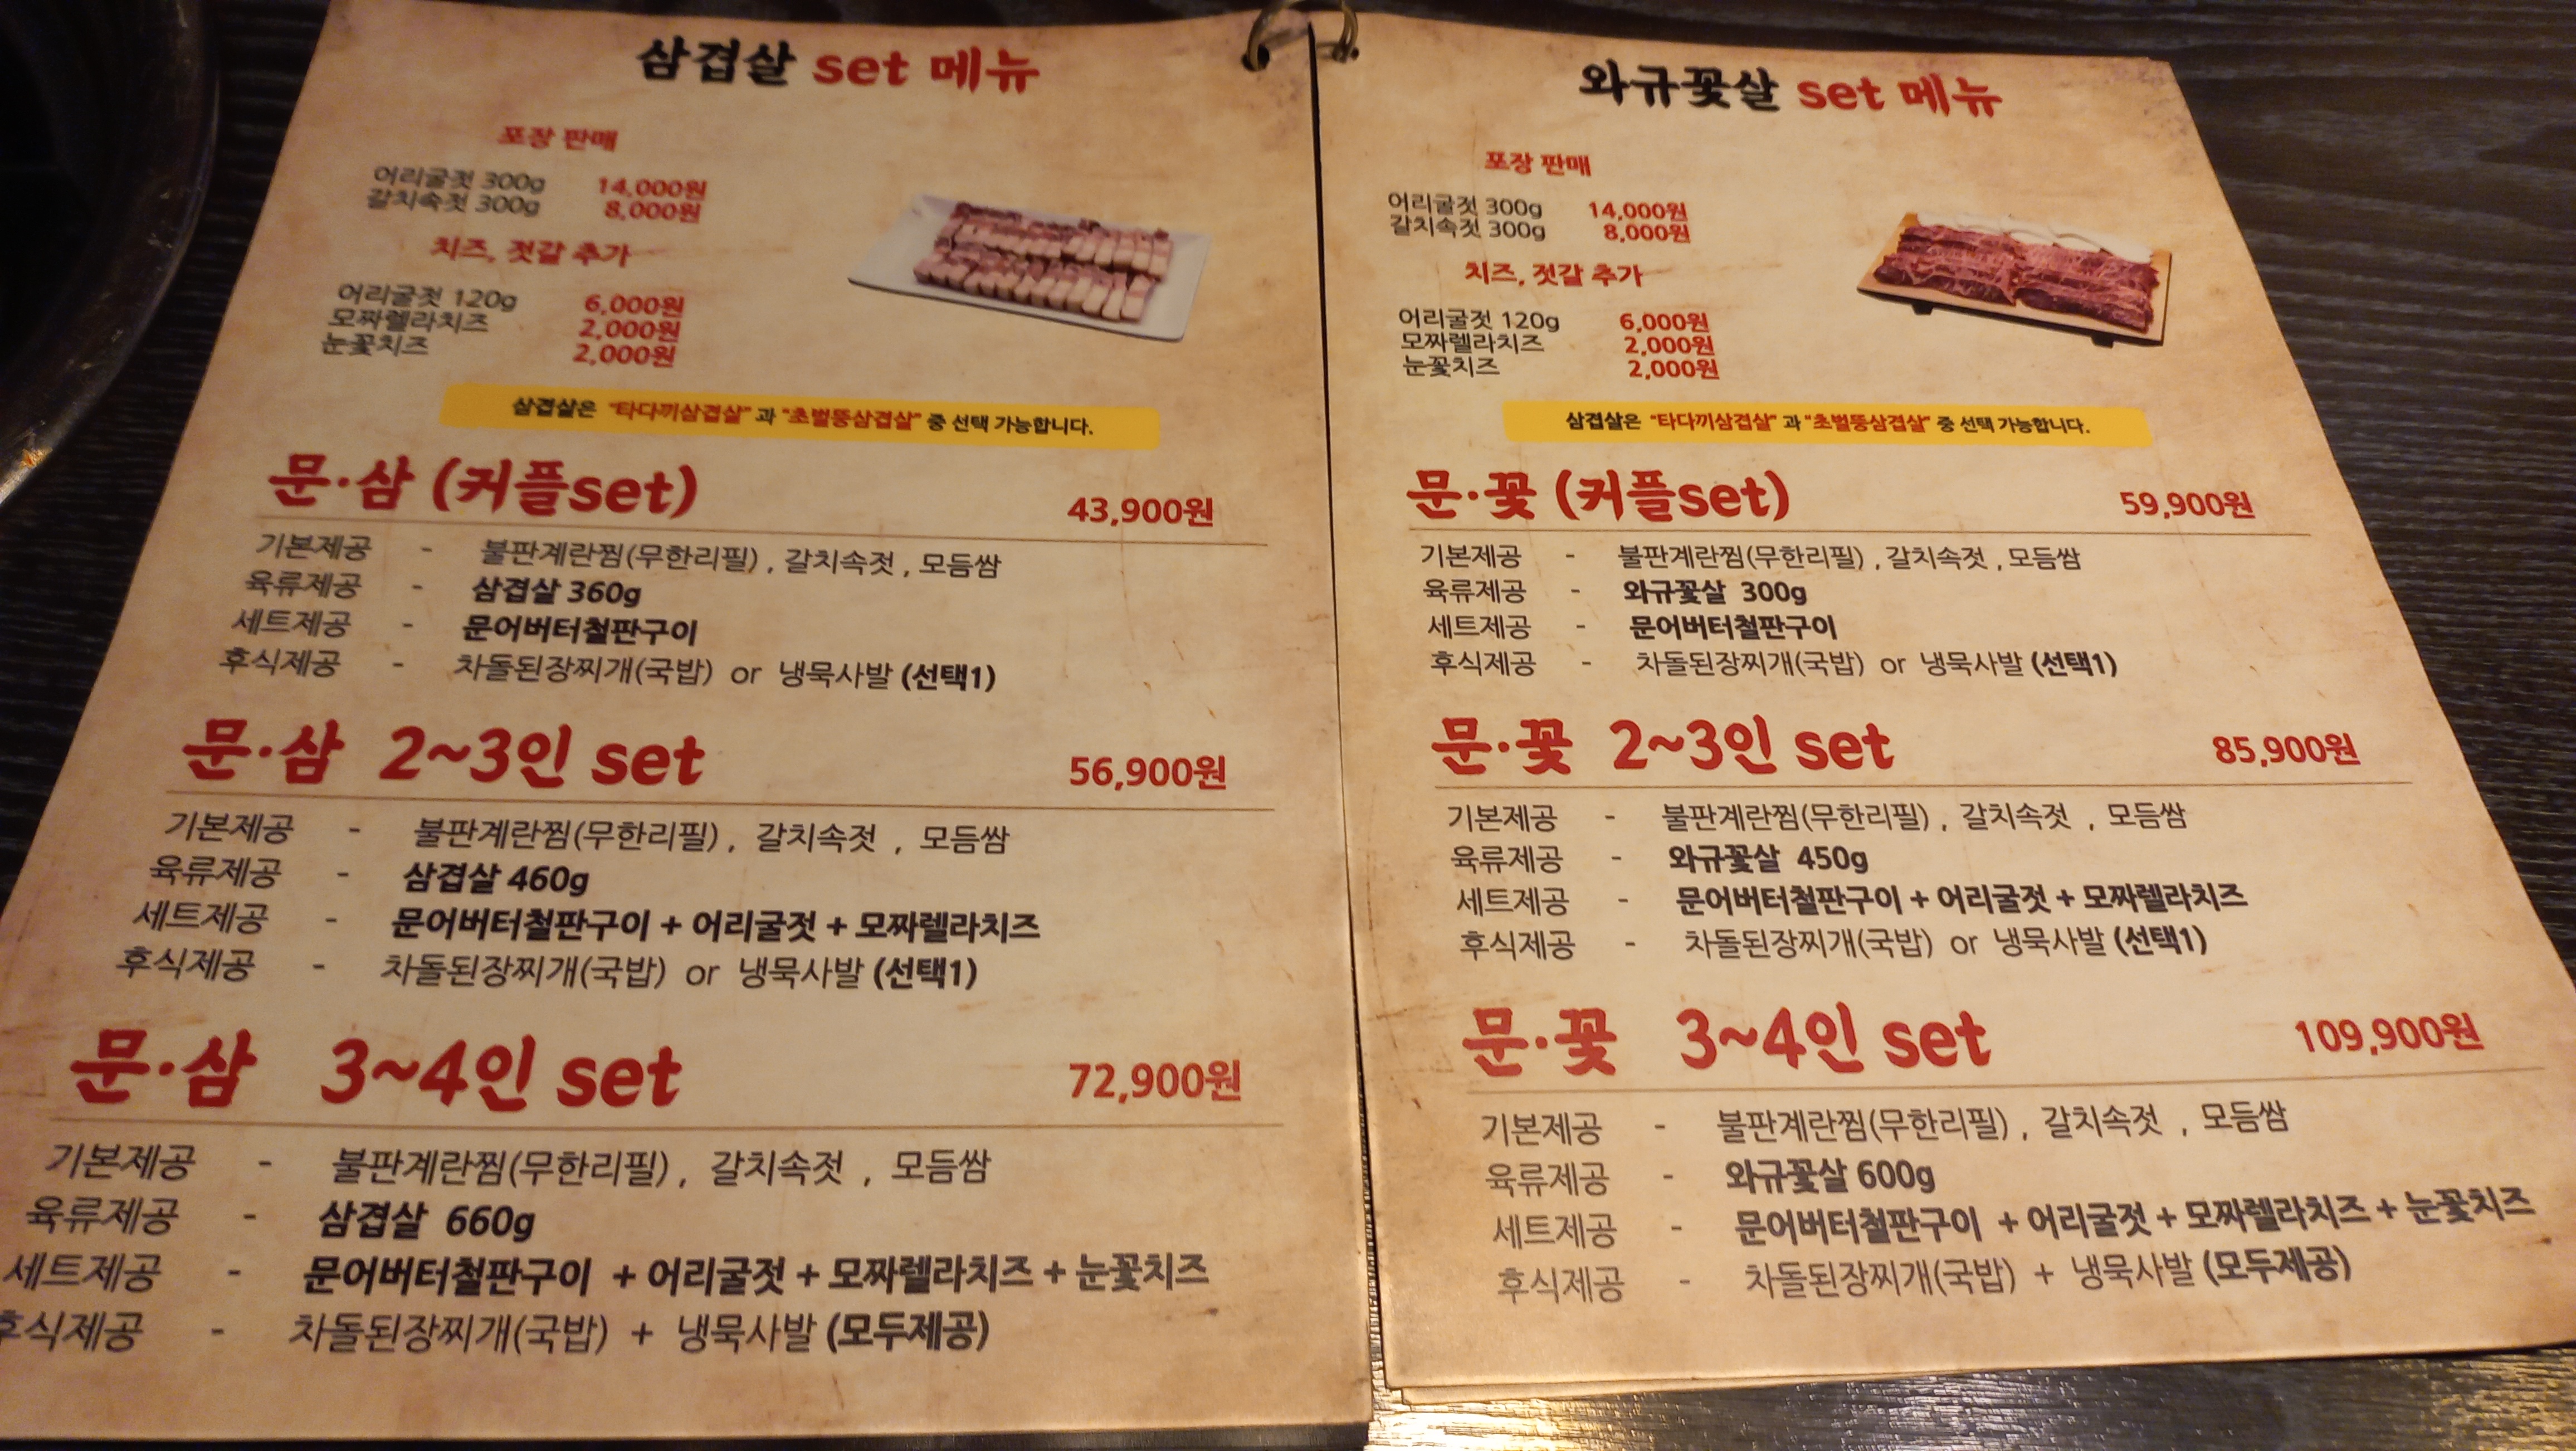 삼겹살 set 메뉴
포장 판매
어리굴젓 300g 14,000원
갈치속젓 300g 8,000원
치즈, 젓갈 추가
어리굴젓 120g 6,000원
모짜렐라치즈 2,000원
눈꽃치즈 2,000원
삼겹살은 "타다끼삼겹살" 과 "초벌뚱삼겹살" 중 선택 가능합니다.
문·삼 (커플set) 43,900원
기본제공 - 불판계란찜(무한리필) , 갈치속젓 , 모듬쌈
육류제공 - 삼겹살 360g
세트제공 - 문어버터철판구이
후식제공 - 차돌된장찌개(국밥) or 냉묵사발 (선택1)
문·삼 2~3인 set 56,900원
기본제공 - 불판계란찜(무한리필) , 갈치속젓 , 모듬쌈
육류제공 - 삼겹살 460g
세트제공 - 문어버터철판구이 + 어리굴젓 + 모짜렐라치즈
후식제공 - 차돌된장찌개(국밥) or 냉묵사발 (선택1)
문·삼 3~4인 set 72,900원
기본제공 - 불판계란찜(무한리필) , 갈치속젓 , 모듬쌈
육류제공 - 삼겹살 660g
세트제공 - 문어버터철판구이 + 어리굴젓 + 모짜렐라치즈 + 눈꽃치즈
후식제공 - 차돌된장찌개(국밥) + 냉묵사발 (모두제공)
와규꽃살 set 메뉴
포장 판매
어리굴젓 300g 14,000원
갈치속젓 300g 8,000원
치즈, 젓갈 추가
어리굴젓 120g 6,000원
모짜렐라치즈 2,000원
눈꽃치즈 2,000원
삼겹살은 "타다끼삼겹살" 과 "초벌뚱삼겹살" 중 선택 가능합니다.
문·꽃 (커플set) 59,900원
기본제공 - 불판계란찜(무한리필) , 갈치속젓 , 모듬쌈
육류제공 - 와규꽃살 300g
세트제공 - 문어버터철판구이
후식제공 - 차돌된장찌개(국밥) or 냉묵사발 (선택1)
문·꽃 2~3인 set 85,900원
기본제공 - 불판계란찜(무한리필) , 갈치속젓 , 모듬쌈
육류제공 - 와규꽃살 450g
세트제공 - 문어버터철판구이 + 어리굴젓 + 모짜렐라치즈
후식제공 - 차돌된장찌개(국밥) or 냉묵사발 (선택1)
문·꽃 3~4인 set 109,900원
기본제공 - 불판계란찜(무한리필) , 갈치속젓 , 모듬쌈
육류제공 - 와규꽃살 600g
세트제공 - 문어버터철판구이 + 어리굴젓 + 모짜렐라치즈 + 눈꽃치즈
후식제공 - 차돌된장찌개(국밥) + 냉묵사발 (모두제공)